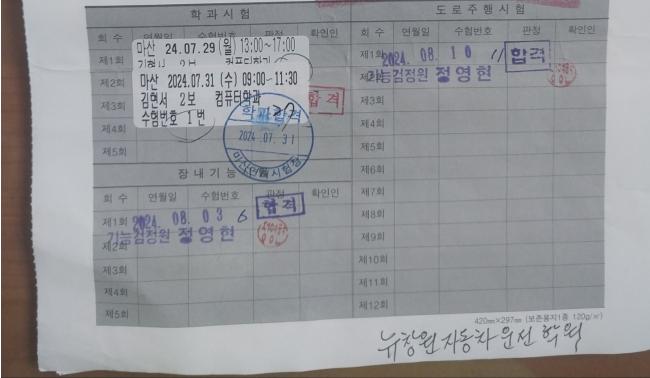 학과시험
회 수 연월일 수험번호 판정 확인인
제1회
제2회
제3회
제4회
제5회
마산 24.07.29 (월) 13:00~17:00
김현서 2보 컴퓨터학과
마산 2024.07.31 (수) 09:00~11:30
김현서 2보 컴퓨터학과
수험번호 1 번
합격
학과합격
2024.07.31
마산운전면허시험장
장내기능
회 수 연월일 수험번호 판정 확인인
제1회 2024. 08. 03 6 합격
제2회 기능검정원 정영현
제3회
제4회
제5회
도로주행시험
회 수 연월일 수험번호 판정 확인인
제1회 2024. 08. 10 11 합격
기능검정원 정영현
제3회
제4회
제5회
제6회
제7회
제8회
제9회
제10회
제11회
제12회
420㎜×297㎜ (보존용지1종 120g/㎡)
뉴창원자동차운전학원